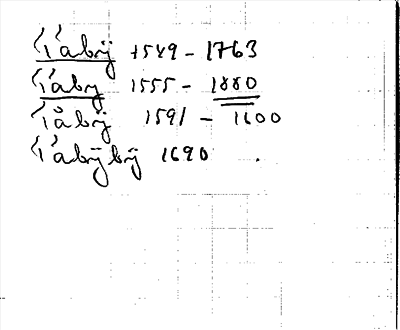 Tåbÿ 1549 - 1763
Tåby 1555 - 1880
Tåbÿ 1591 - 1600
Tåbÿbÿ 1690